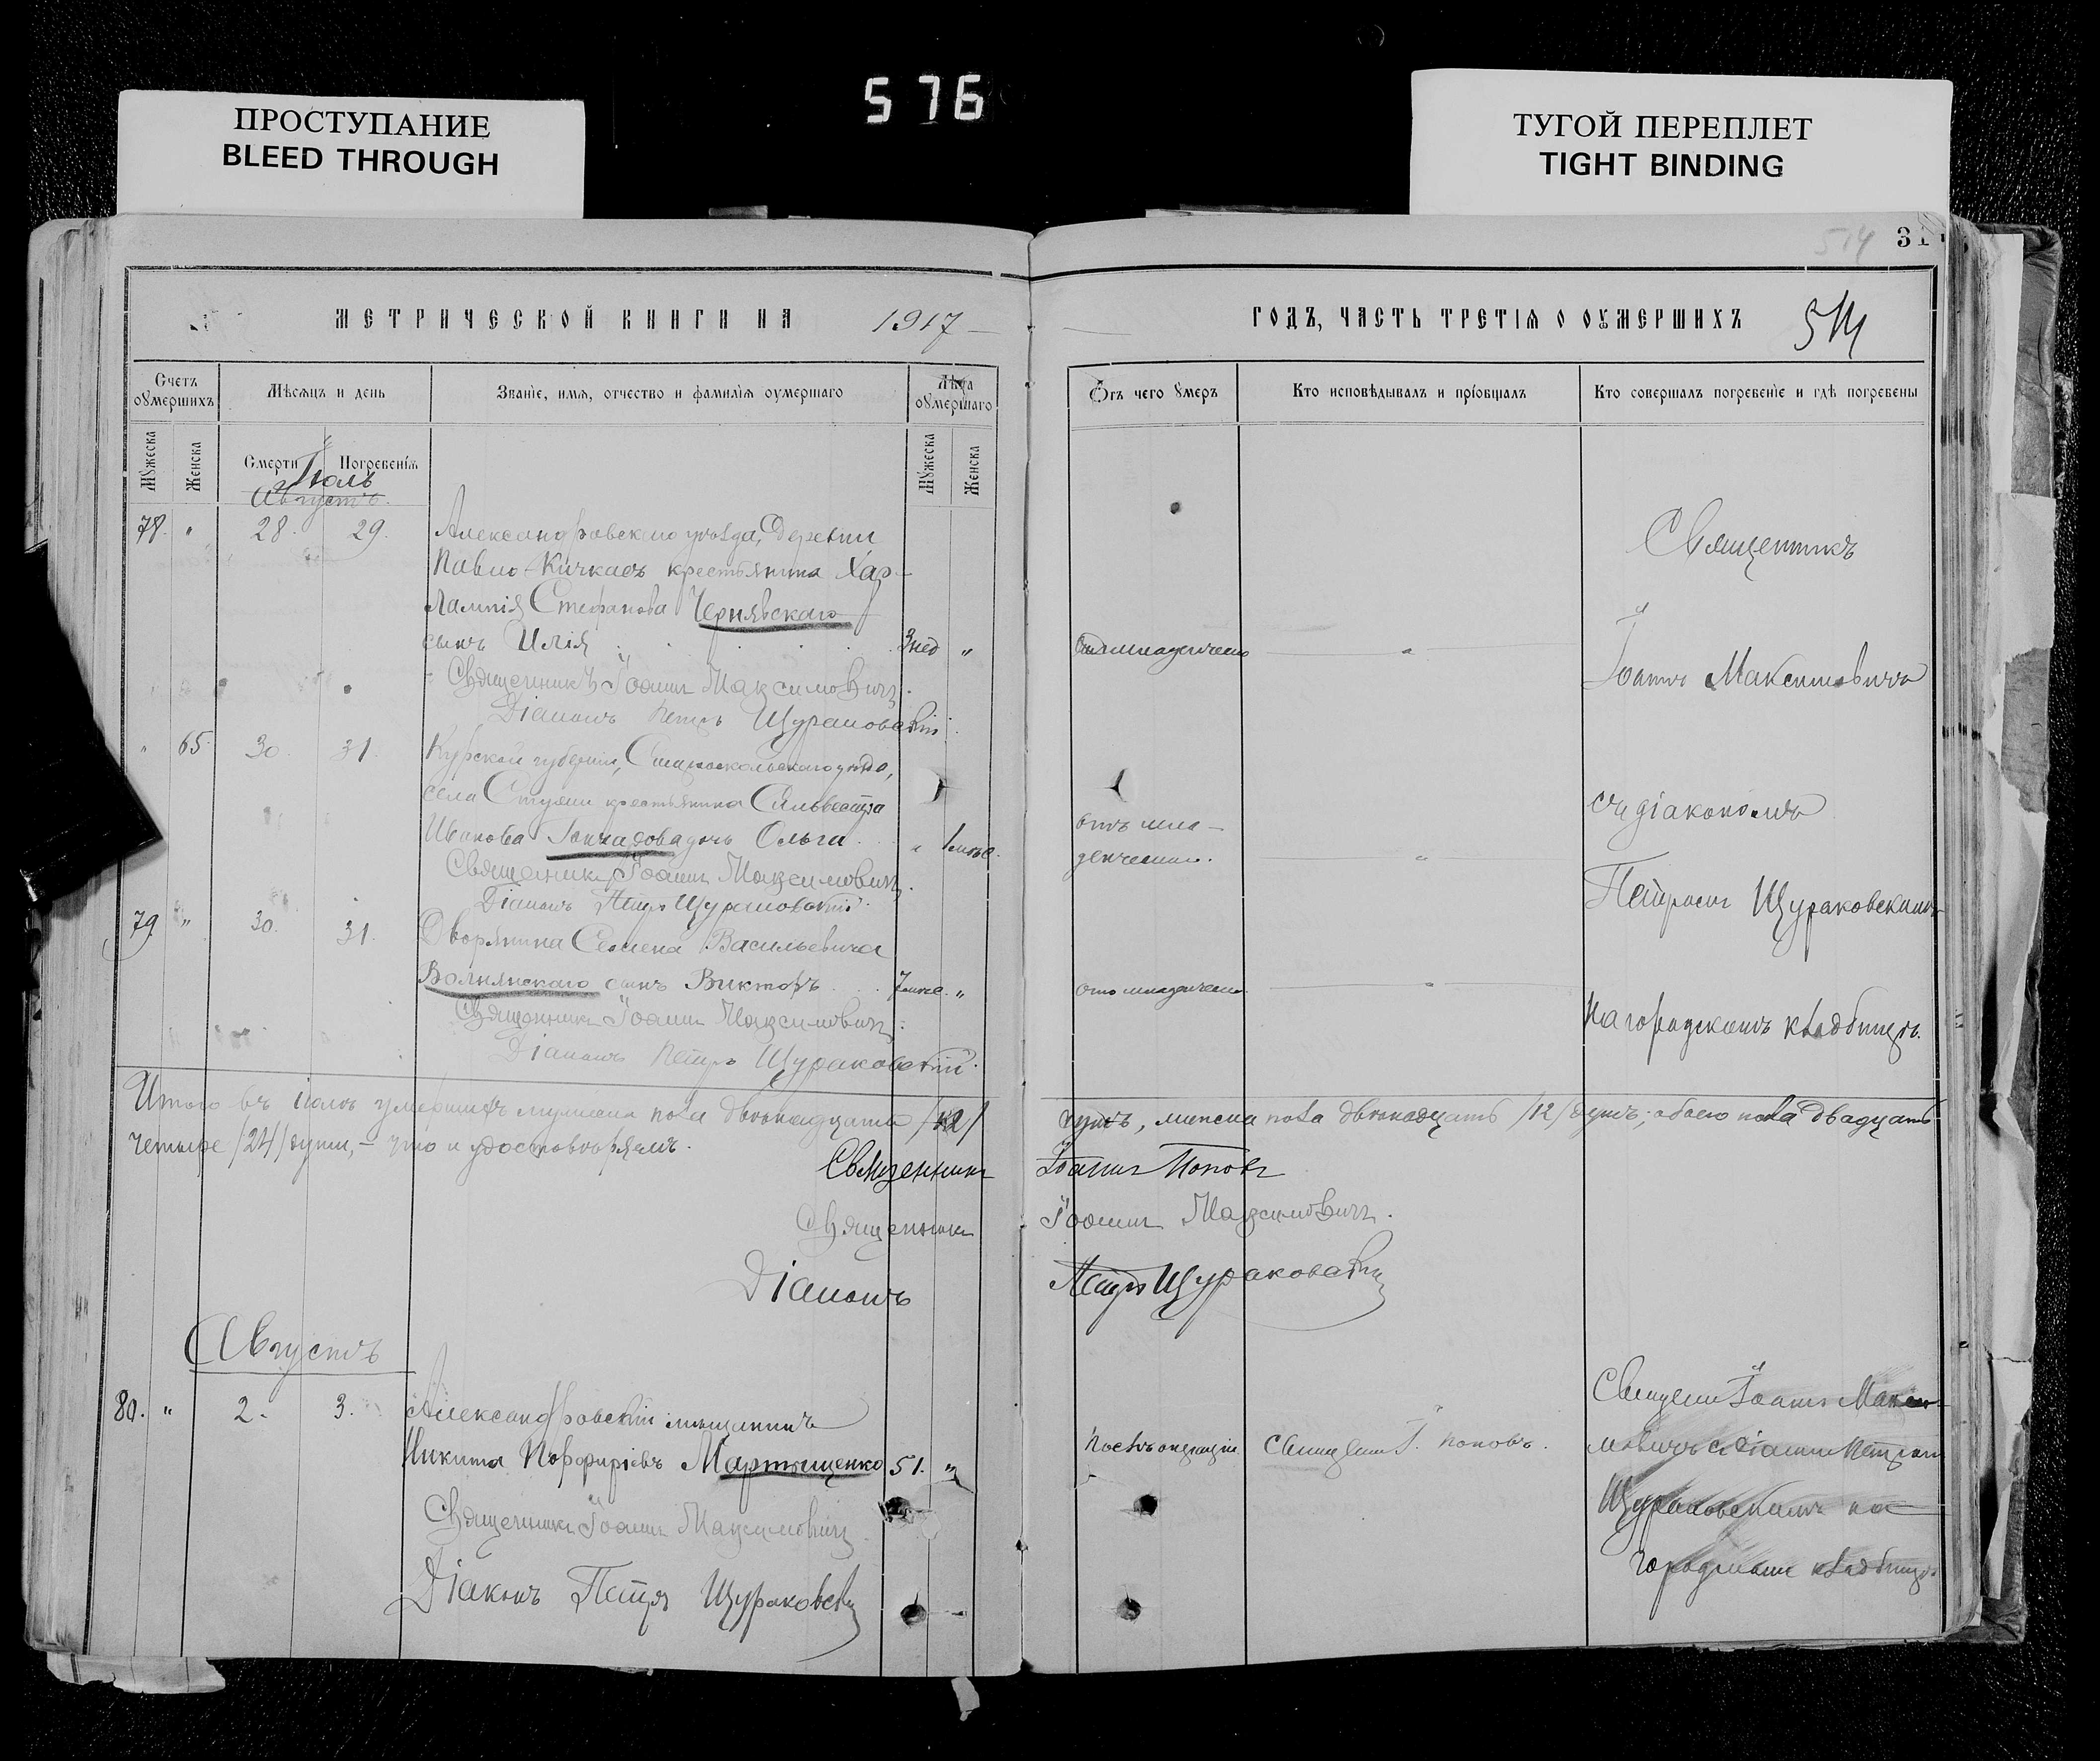 ПРОСТУПАНИЕ
BLEED THROUGH
576
ТУГОЙ ПЕРЕПЛЕТ
TIGHT BINDING
514 31
МЕТРИЧЕСКОЙ КНИГИ НА 1917
ГОДЪ, ЧАСТЬ ТРЕТІѦ О ОУМЕРШИХЪ 514
Счетъ оумершихъ
Мѣсѧцъ и день
Званіе, имѧ, отчество и фамиліѧ оумершаго
Лѣта оумершаго
Отъ чего умеръ
Кто исповѣдывалъ и пріобщалъ
Кто совершалъ погребеніе и гдѣ погребены
Мужеска
Женска
Смерти
Погребеніѧ
Мужеска
Женска
Іюль
Августъ
78. " 28. 29. Александровскаго уѣзда, деревни
Павло-Кичкасъ крестьянина Хар-
лампія Стефанова Чернявскаго
сынъ Илія 3 нед "
Священникъ Іоаннъ Максимовичъ.
Діаконъ Петръ Щураковскій.
Священникъ
Іоаннъ Максимовичъ
" 65. 30. 31. Курской губерніи, Старооскольскаго уѣзда,
села крестьянина Сильвестра
Иванова дочь Ольга " 1 мѣс.
Священникъ Іоаннъ Максимовичъ.
Діаконъ Петръ Щураковскій.
отъ мла-
денческой.
съ діакономъ
Петромъ Щураковскимъ
79. " 30. 31. Дворянина Семена Васильевича
Волнянскаго сынъ Викторъ 7 мѣс. "
Священникъ Іоаннъ Максимовичъ.
Діаконъ Петръ Щураковскій.
на городскомъ кладбищѣ.
Итого въ іюлѣ умершихъ мужеска пола двѣнадцать /12/
душъ, женска пола двѣнадцать /12/ душъ; обоего пола двадцать
четыре /24/ души, - что и удостовѣряемъ.
Священникъ Іоаннъ Поповъ
Священникъ Іоаннъ Максимовичъ.
Діаконъ Петръ Щураковскій
Августъ
80. " 2. 3. Александровскій мѣщанинъ
Никита Порфиріевъ Мартыщенко 51. "
Священникъ Іоаннъ Максимовичъ
Діаконъ Петръ Щураковскій
Послѣ операціи
Священ. І. Поповъ.
Священ. Іоаннъ Макси-
мовичъ съ діакон. Петромъ
Щураковскимъ на
городскомъ кладбищѣ.